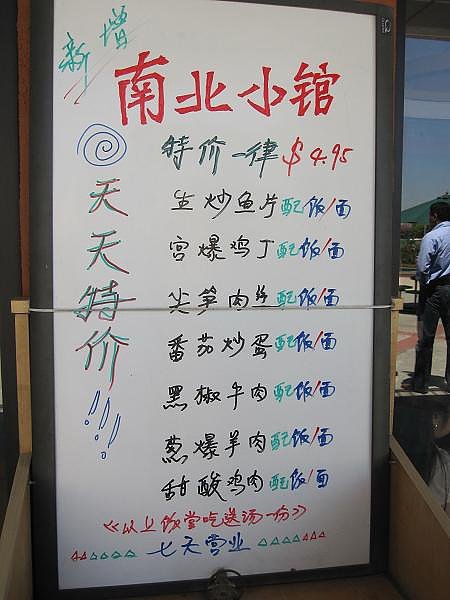 新增
南北小馆
特价一律 $4.95
天天特价!!!
生炒鱼片配饭/面
宫爆鸡丁配饭/面
尖笋肉丝配饭/面
番茄炒蛋配饭/面
黑椒牛肉配饭/面
葱爆羊肉配饭/面
甜酸鸡肉配饭/面
《以上饭堂吃送汤一份》
七天营业